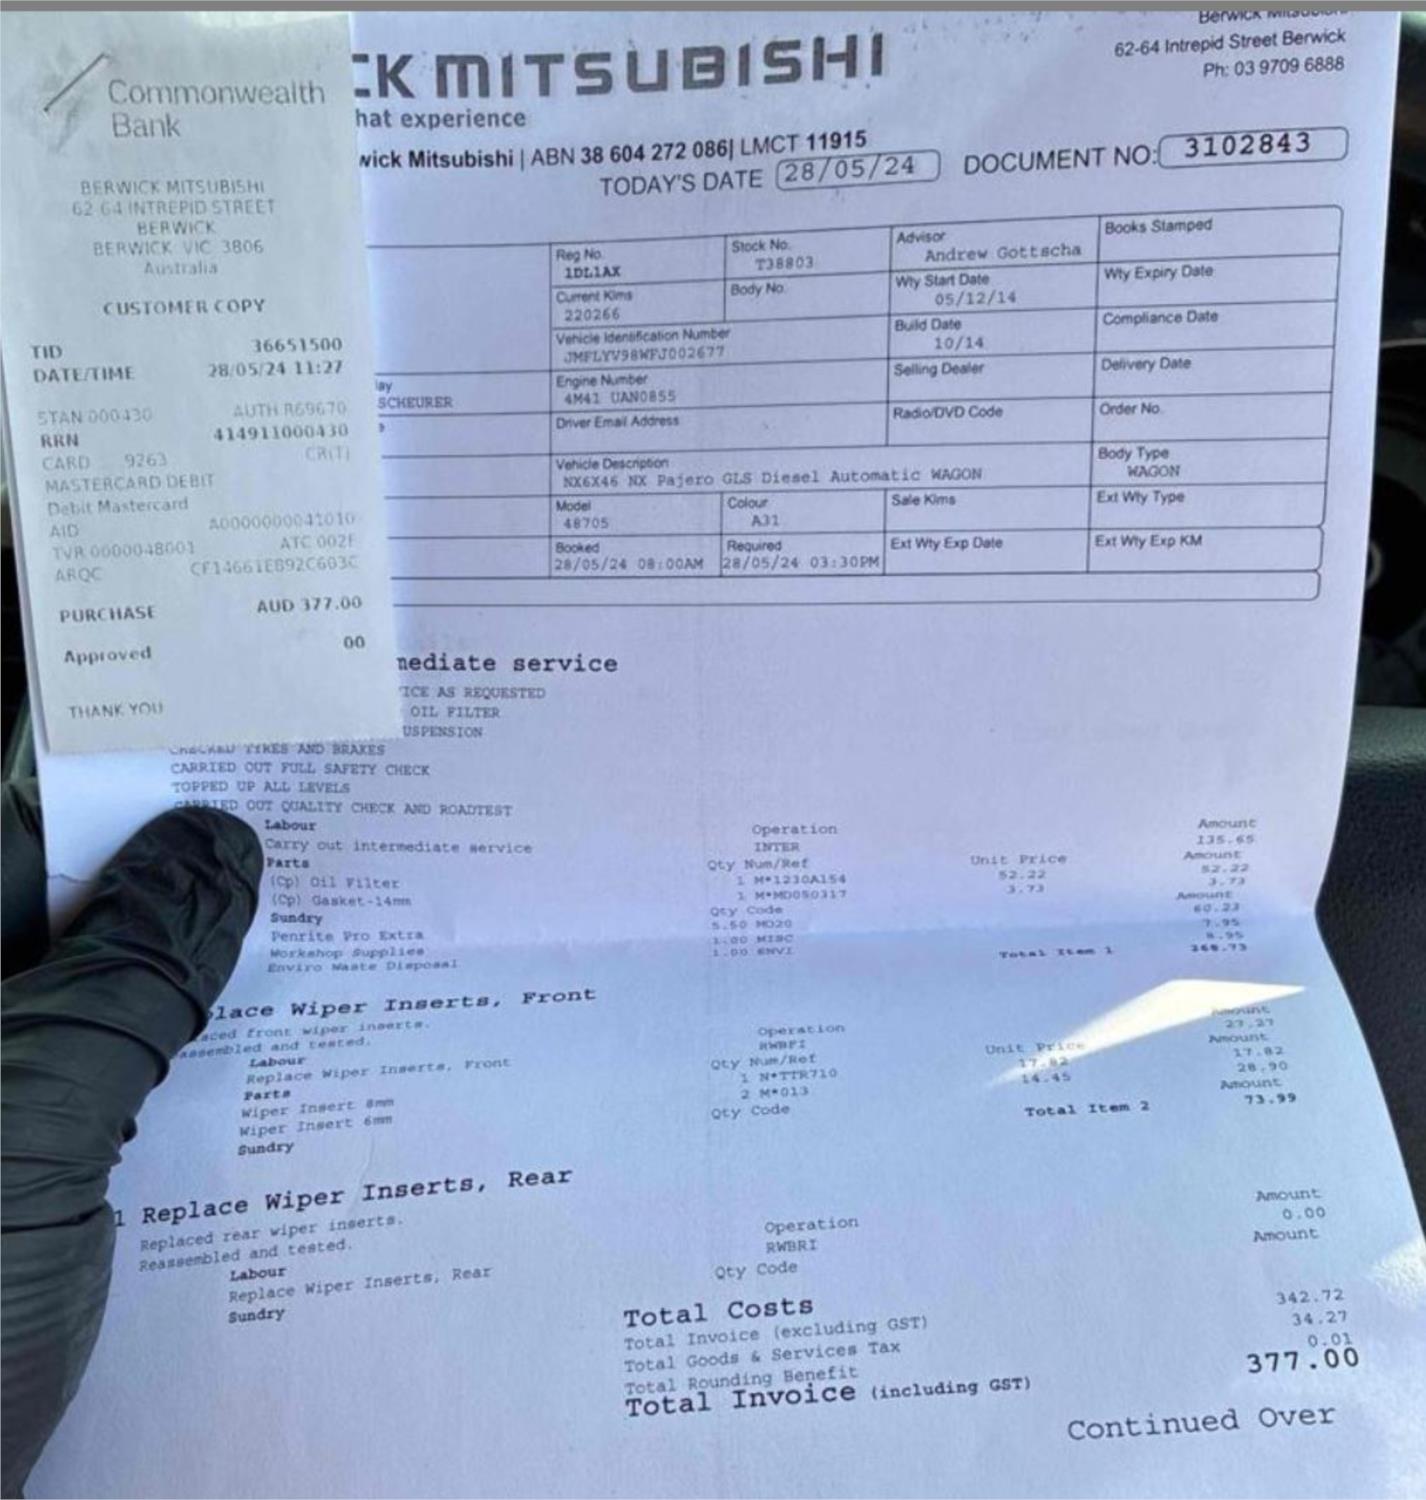 Commonwealth
Bank
BERWICK MITSUBISHI
62-64 INTREPID STREET
BERWICK
BERWICK VIC 3806
Australia
CUSTOMER COPY
TID 36651500
DATE/TIME 28/05/24 11:27
STAN 000430 AUTH R69670
RRN 414911000430
CARD 9263 CR(T)
MASTERCARD DEBIT
Debit Mastercard
AID A0000000041010
TVR 0000048001 ATC 002F
ARQC CF14661E892C603C
PURCHASE AUD 377.00
Approved 00
THANK YOU
CK MITSUBISHI
hat experience
wick Mitsubishi | ABN 38 604 272 086| LMCT 11915
Berwick Mitsubishi
62-64 Intrepid Street Berwick
Ph: 03 9709 6888
TODAY'S DATE 28/05/24 DOCUMENT NO: 3102843
Reg No. 1DL1AX
Stock No. T38803
Advisor Andrew Gottscha
Books Stamped
Current Kims 220266
Body No.
Wty Start Date 05/12/14
Wty Expiry Date
Vehicle Identification Number JMFLYV98WFJ002677
Build Date 10/14
Compliance Date
lay
SCHEURER
Engine Number 4M41 UAN0855
Selling Dealer
Delivery Date
Driver Email Address
Radio/DVD Code
Order No.
Vehicle Description
NX6X46 NX Pajero GLS Diesel Automatic WAGON
Body Type WAGON
Model 48705
Colour A31
Sale Kims
Ext Wty Type
Booked 28/05/24 08:00AM
Required 28/05/24 03:30PM
Ext Wty Exp Date
Ext Wty Exp KM
mediate service
ICE AS REQUESTED
OIL FILTER
USPENSION
CHECKED TYRES AND BRAKES
CARRIED OUT FULL SAFETY CHECK
TOPPED UP ALL LEVELS
CARRIED OUT QUALITY CHECK AND ROADTEST
Labour Operation Amount
Carry out intermediate service INTER 135.65
Parts Qty Num/Ref Unit Price Amount
(Cp) Oil Filter 1 M*1230A154 52.22 52.22
(Cp) Gasket-14mm 1 M*MD050317 3.73 3.73
Sundry Qty Code Amount
Penrite Pro Extra 5.50 MO20 60.23
Workshop Supplies 1.00 MISC 7.95
Enviro Waste Disposal 1.00 ENVI 8.95
Total Item 1 268.73
lace Wiper Inserts, Front
aced front wiper inserts.
assembled and tested.
Labour Operation Amount
Replace Wiper Inserts, Front RWBFI 27.27
Parts Qty Num/Ref Unit Price Amount
Wiper Insert 8mm 1 N*TTR710 17.82 17.82
Wiper Insert 6mm 2 M*013 14.45 28.90
Sundry Qty Code Amount
Total Item 2 73.99
1 Replace Wiper Inserts, Rear
Replaced rear wiper inserts.
Reassembled and tested.
Labour Operation Amount
Replace Wiper Inserts, Rear RWBRI 0.00
Sundry Qty Code Amount
Total Costs
Total Invoice (excluding GST) 342.72
Total Goods & Services Tax 34.27
Total Rounding Benefit 0.01
Total Invoice (including GST) 377.00
Continued Over